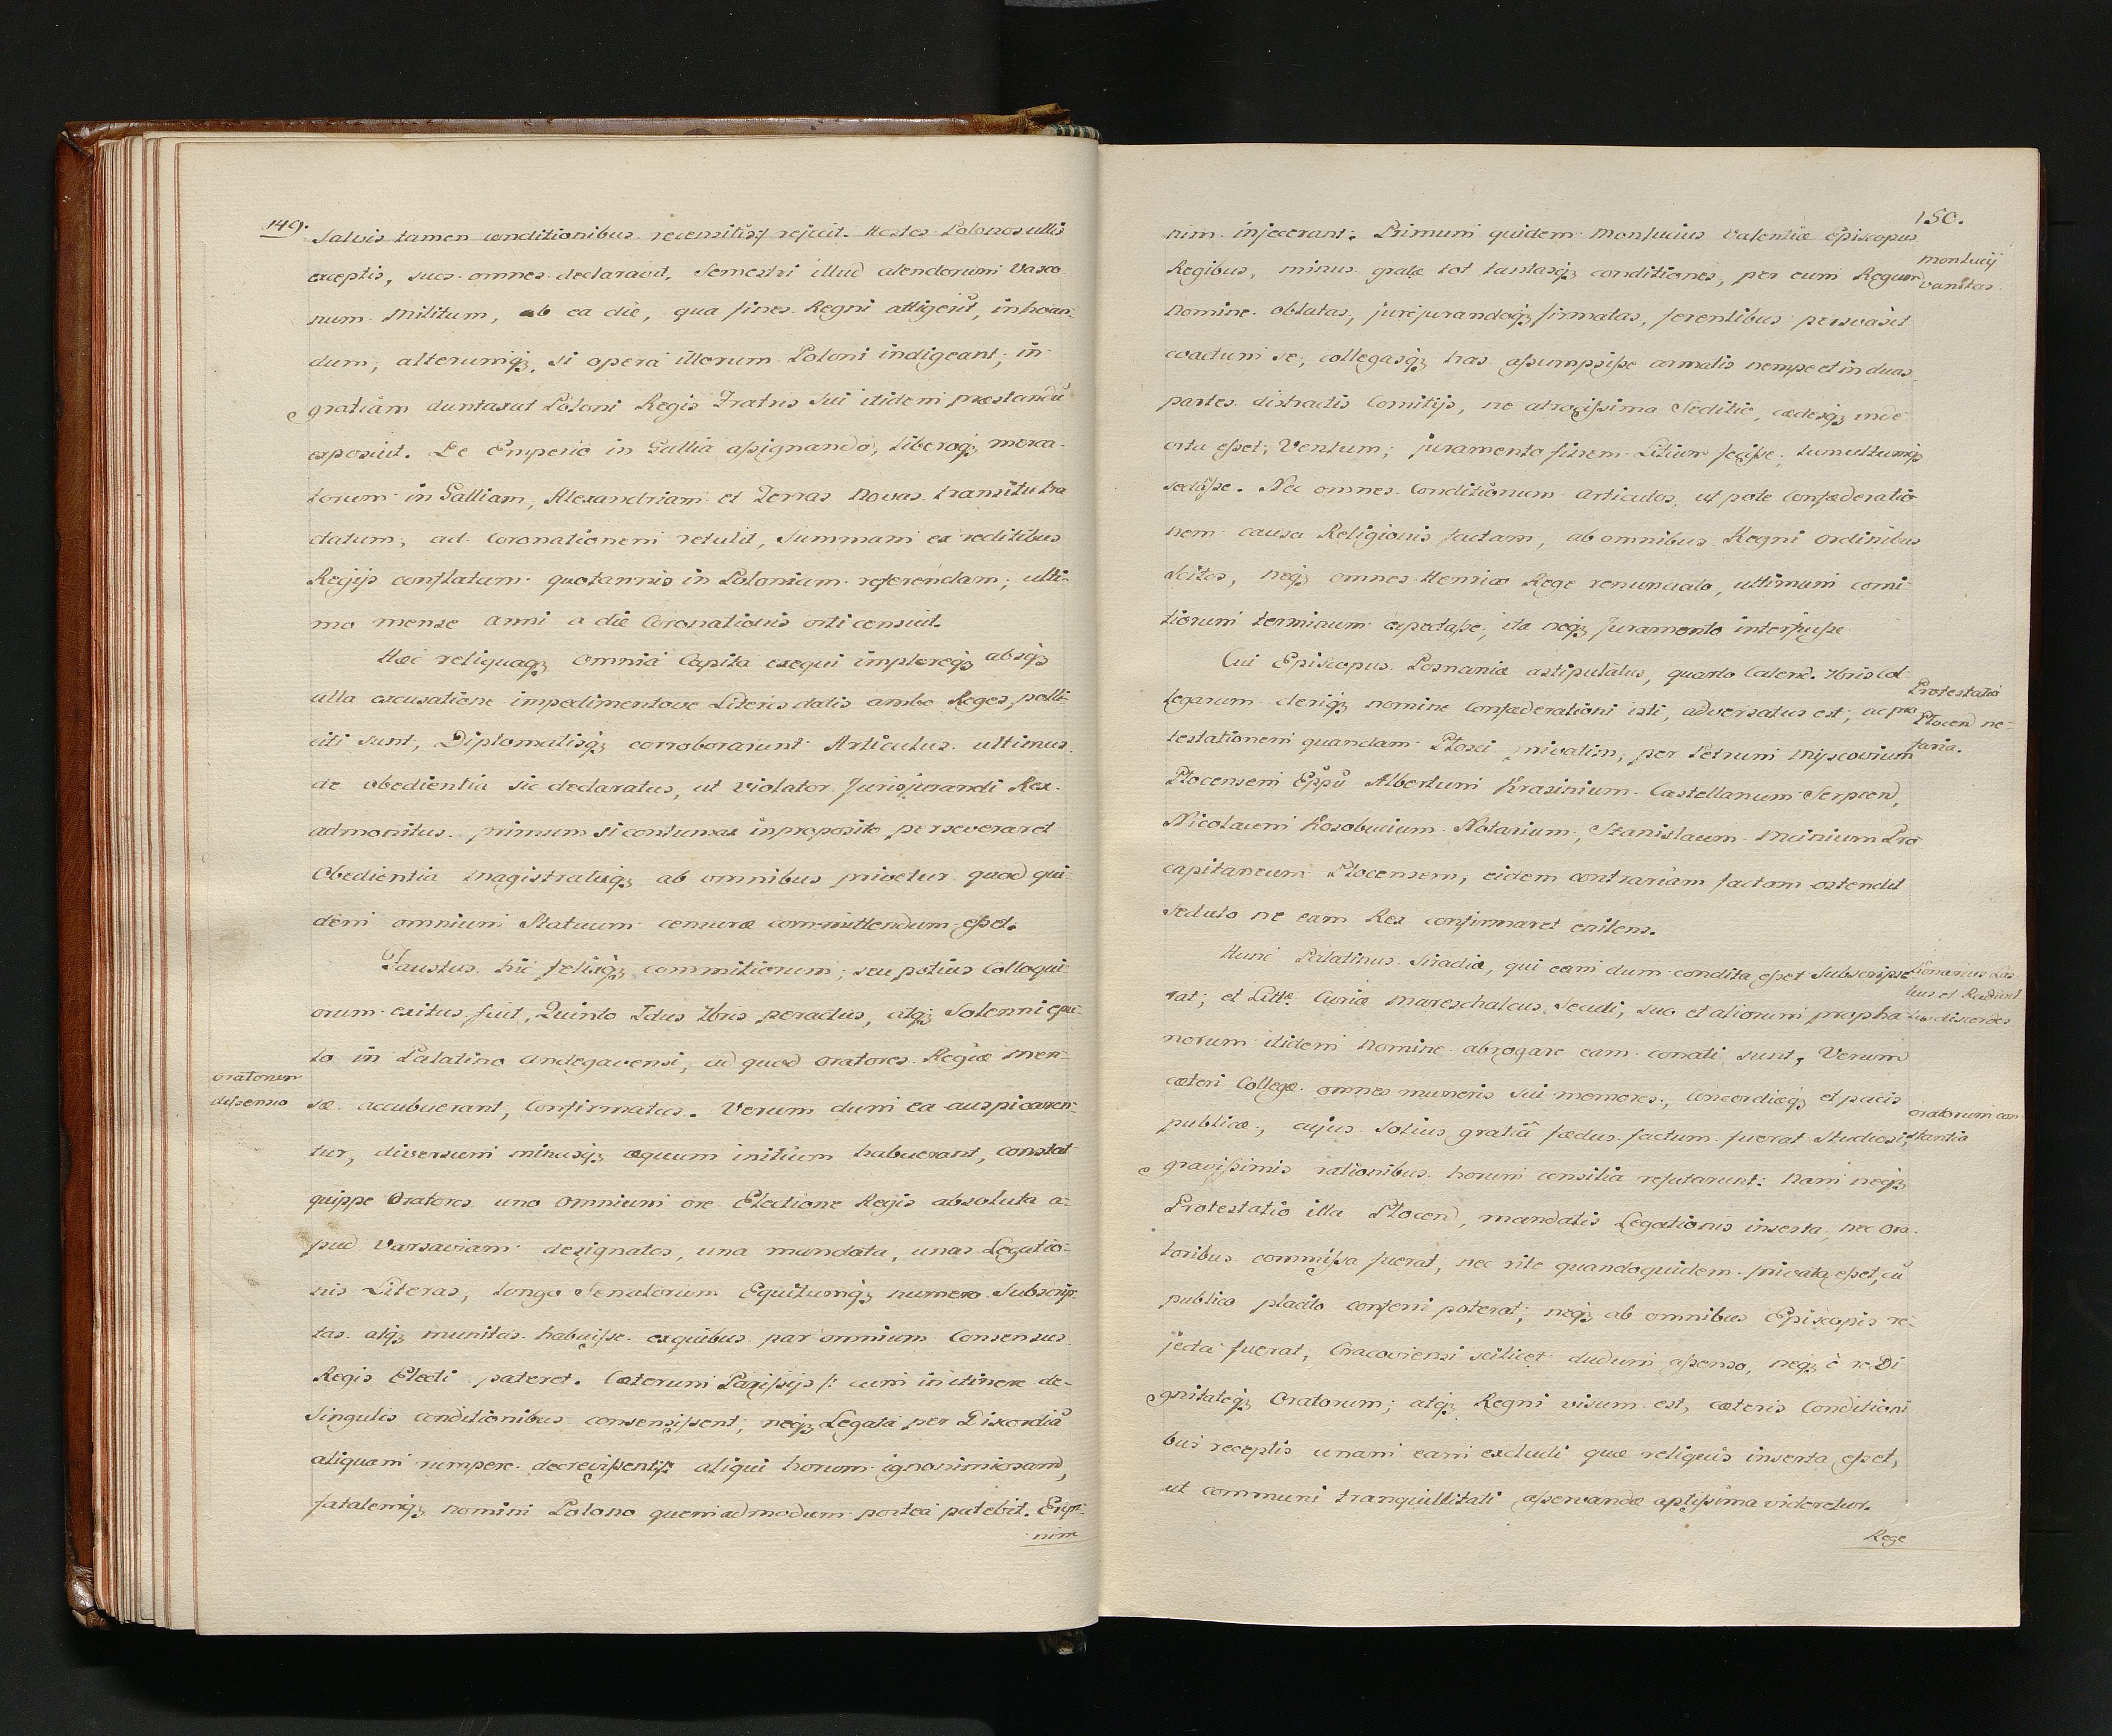 149.
Salvis tamen conditionibus recensitis :/ rejecit. Hostes Polonos ullis
exceptis, suos omnes declaravit, Semestri illud alendorum Vasco
num Militum, ab ea die, qua fines Regni attigerit, inhoan-
dum, alterumq3, si opera illorum Poloni indigeant, in
gratiam duntaxat Poloni Regis Fratris Sui itidem præstandũ
exposuit. De Emperio in Gallia assignando, liberoq3 merca-
torum in Galliam, Alexandriam et Terras Novas transitu tra
datum, ad Coronationem retulit, Summam ex reditibus
Regijs conflatam quotannis in Poloniam referendam, ulti-
mo mense anni a die Coronationis orti censuit.
Hæc reliquaq3 omnia Capita exequi implereq3 absq3
ulla excusatione impedimentove Literis datis ambo Reges, polli-
citi sunt, Diplomatisq3 corroborarunt Articulus ultimus
de obedientia sic declaratus, ut violator Jurisjurandi Rex
admonitus primum si contumax in proposito perseveraret
Obedientia Magistratuq3 ab omnibus privetur quod qui-
dem omnium Statuum censuræ committendum esset.
Faustus hic felixq3 commitiorum, seu potius Colloqui-
orum exitus fuit, Quinto Idus 7bris peractus, atq3 Solenni epu-
lo in Palatino Andegavensi, ad quod Oratores Regiæ men-
Oratorum
dissensio
sæ accubuerant, Confirmatus. Verum dum ea auspicaren-
tur, diversum minusq3 æquum initium habuerant, constat
quippe Oratores uno omnium ore Electione Regis absoluta a-
pud Varsaviam designatos, una mandata, unas Legatio-
nis Literas, longo Senatorum Equitumq3 numero Subscrip-
tas atq3 munitas habuisse exquibus par omnium Consensus
Regis Electi pateret. Cæterum Parisijs /: cum in itinere de-
Singulis conditionibus consensissent, neq3 Legata per Discordiã
aliquam rumpere decrevissent :/ aliqui horum ignominiosam,
fatalemq3 nomini Polono quemadmodum postea patebit.
nim
150.
nim injecerant. Primum quidem Monlucius Valentiæ Episcopus
Montucij
vanitas
Regibus, minus grate tot tantasq3 conditiones, per eum Regum
Nomine oblatas, jurejurandoq3 firmatas, ferentibus persvasit
coactum se, collegasq3 has assumpsisse armatis nempe et in duas
partes distractis Comitijs, ne atrocissima Seditio, cædesq3 inde
orta esset; Ventum, juramento finem Litium fecisse, tumultumq3
sedasse. Nec omnes Conditionum articulos, ut pote confæderatio
nem causa Religionis factam, ab omnibus Regni ordinibus
Scitos, neq3 omnes Henrico Rege renunciato, ultimum comi-
tiorum terminum expectasse, ita neq3 Juramento interfuisse
Cui Episcopus Posnaniæ astipulatus, quarto Calend. 7bris Col-
Protestatio
Plocens ne-
faria.
legarum cleriq3 nomine Confæderationi isti, adversatus est, ac pro
testationem quandam Plosci privatim, per Petrum Myscovium
Plocensem Eppũ Albertum Krasinium Castellanum Serpcens,
Nicolaum Kosobucium Notarium, Stanislaum Minium Pro
capitaneum Plocensem, eidem contrariam factam ostendit
sedulo ne eam Rex confirmaret enitens.
Hunc Palatinus Siradiæ, qui eam dum condita esset Subscripse-
rat, et Littæ Curiæ Mareschalcus Seculi, suo et aliorum propha-
norum itidem Nomine abrogare eam conati sunt, Verum
cæteri Collegæ omnes muneris sui memores, Concordiæq3 et pacis
Oratorum con
stantia
publicæ, cujus Solius gratiâ fædus factum fuerat Studiosi,
gravissimis rationibus horum consilia refutarunt: nam neq3
Protestatio illa Plocens, mandatis Legationis inserta, nec Ora-
toribus commissa fuerat, nec rite quandoquidem privata esset, cũ
publico placito conferri poterat; neq3 ab omnibus Episcopis re-
jecta fuerat, Cracoviensi scilicet dudum assenso, neq3 è re Di-
gnitateq3 Oratorum, atq3 Regni visum est, cæteris Conditioni
bus receptis unam eam excludi quæ reliquis inserta esset,
ut communi tranquillitati asservandæ aptissima videretur.
Rege